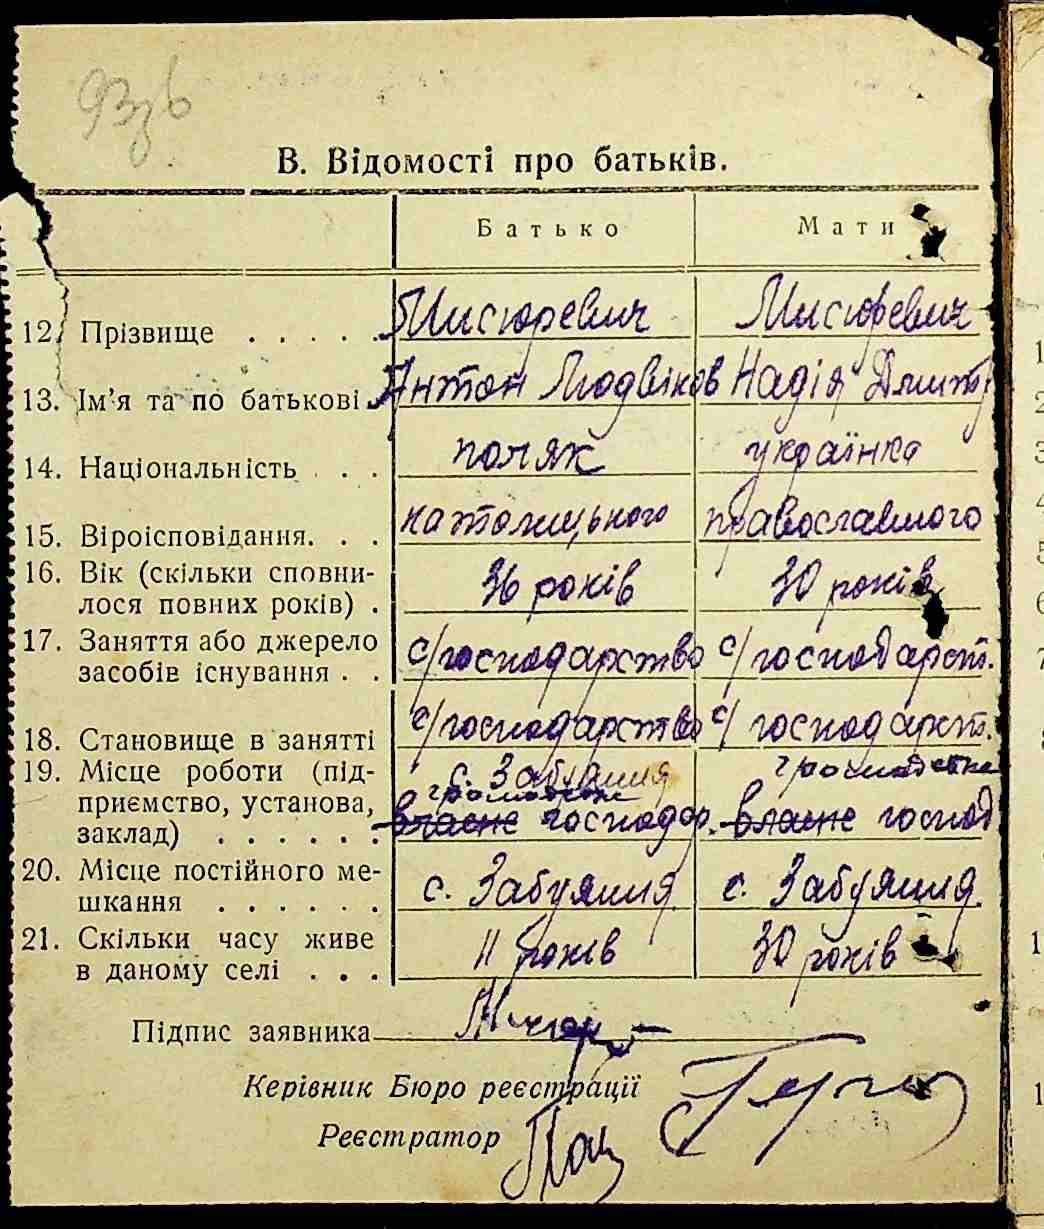 93зв
В. Відомості про батьків.
Батько Мати
12. Прізвище . . . . . Мисюревич Мисюревич
13. Ім'я та по батькові Антон Людвіков Надія Дмитр
14. Національність . . . поляк українка
15. Віроісповідання. . . католицького православного
16. Вік (скільки сповни-
лося повних років) . 36 років 30 років
17. Заняття або джерело
засобів існування . . с/господарство с/господарст.
18. Становище в занятті с/господарство с/господарст.
19. Місце роботи (під-
приємство, установа,
заклад) . . . . . . власне господар. власне господ
20. Місце постійного ме-
шкання . . . . . . с. Забуяння с. Забуяння
21. Скільки часу живе
в даному селі . . . 11 років 30 років
Підпис заявника
Керівник Бюро реєстрації
Реєстратор